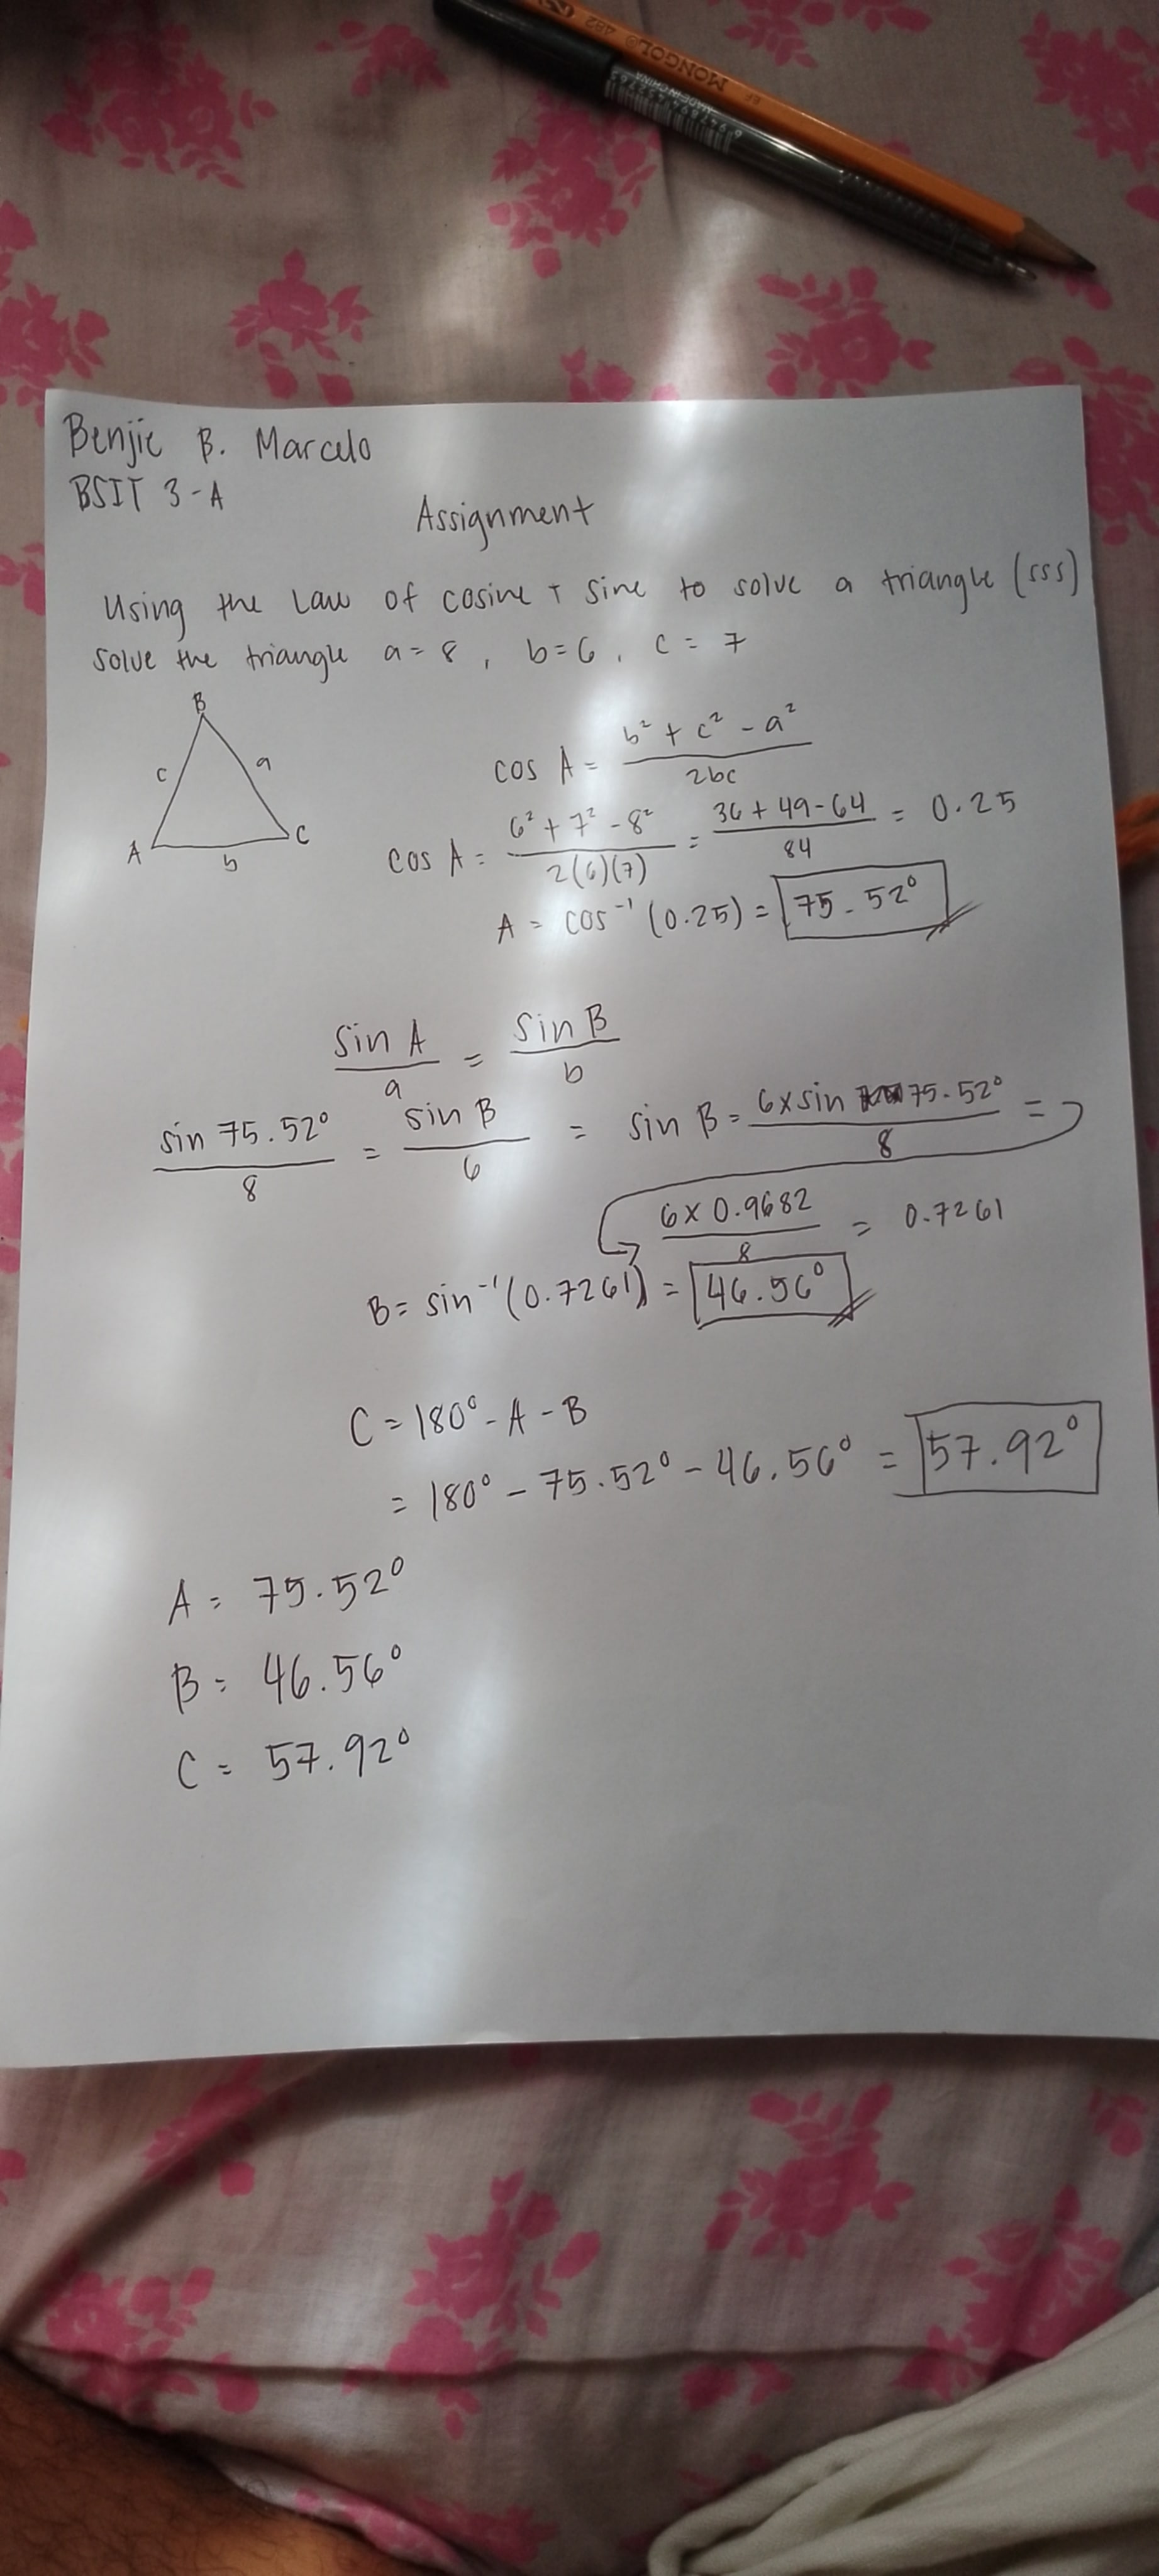 MONGOL 482
MADE IN CHINA
Benjie B. Marcelo
BSIT 3-A
Assignment
Using the Law of cosine + sine to solve a triangle (SSS)
Solve the triangle a = 8, b = 6, c = 7
B
c a
A b C
cos A = b² + c² - a² / 2bc
cos A = 6² + 7² - 8² / 2(6)(7) = 36 + 49 - 64 / 84 = 0.25
A = cos⁻¹ (0.25) = 75.52°
sin A / a = sin B / b
sin 75.52° / 8 = sin B / 6 = sin B = 6 x sin 75.52° / 8 =
6 x 0.9682 / 8 = 0.7261
B = sin⁻¹ (0.7261) = 46.56°
C = 180° - A - B
= 180° - 75.52° - 46.56° = 57.92°
A = 75.52°
B = 46.56°
C = 57.92°